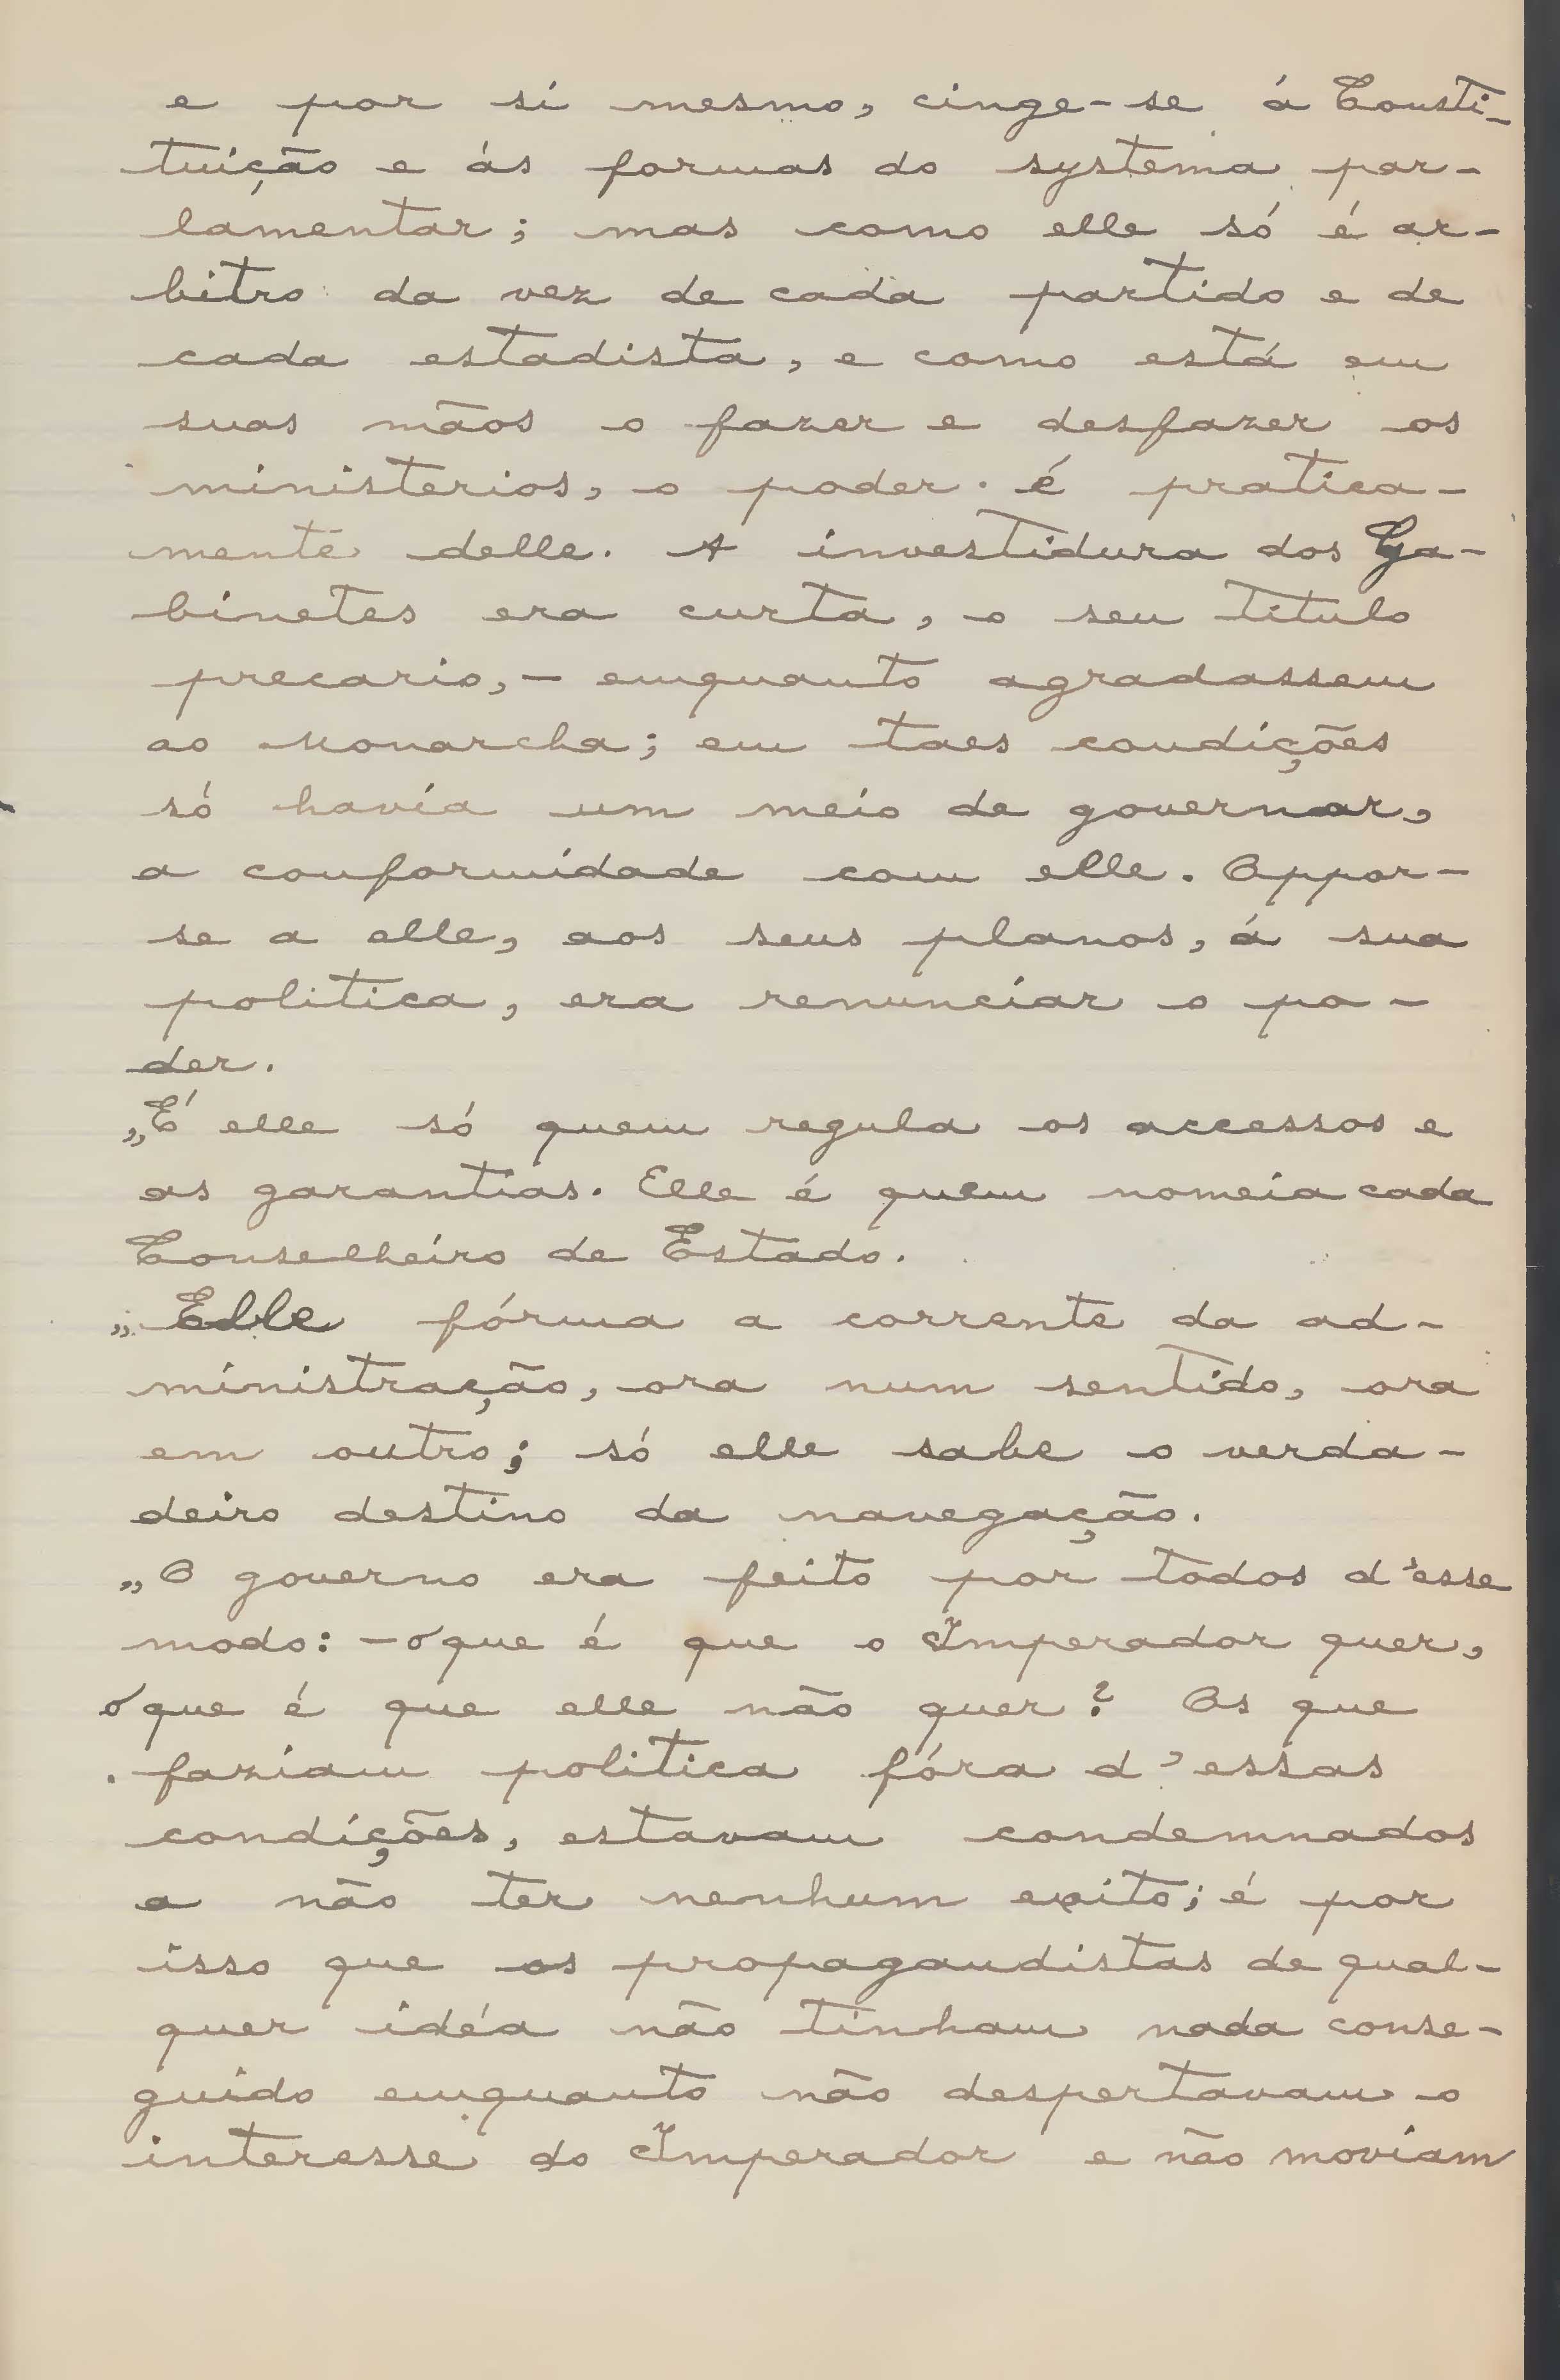 e por si mesmo, cinge-se á Consti-
tuição e ás formas do systema par-
lamentar; mas como elle só é ar-
bitro da vez de cada partido e de
cada estadista, e como está em
suas mãos o fazer e desfazer os
ministerios, o poder é pratica-
mente delle. A investidura dos Ga-
binetes era curta, o seu titulo
precario, - emquanto agradassem
ao Monarcha; em taes condições
só havia um meio de governar,
a conformidade com elle. Oppor-
se a elle, aos seus planos, á sua
politica, era renunciar o po-
der.
„É elle só quem regula os accessos e
as garantias. Elle é quem nomeia cada
Conselheiro de Estado.
„Elle fórma a corrente da ad-
ministração, ora num sentido, ora
em outro; só elle sabe o verda-
deiro destino da navegação.
„O governo era feito por todos d'esse
modo: - o que é que o Imperador quer,
o que é que elle não quer? Os que
faziam politica fóra d'essas
condições, estavam condemnados
a não ter nenhum exito; é por
isso que os propagandistas de qual-
quer idéa não tinham nada conse-
guido emquanto não despertavam o
interesse do Imperador e não moviam